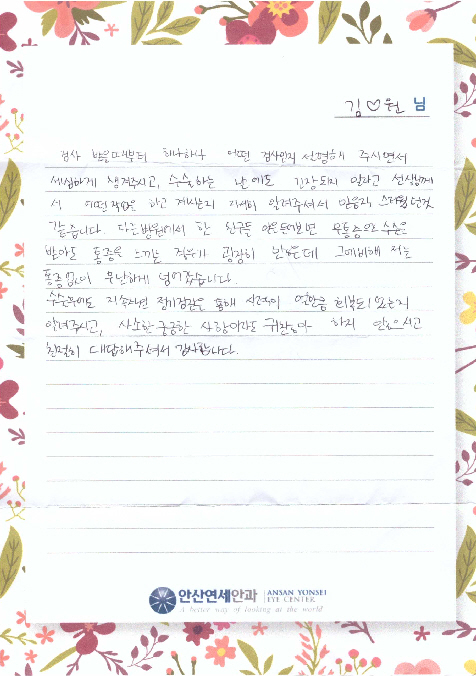 김♡원 님
검사 받을때부터 하나하나 어떤 검사인지 설명해 주시면서
세심하게 챙겨주시고, 수술하는 난에도 긴장되지 말라고 선생님께
서 어떤 작업을 하고 계시는지 자세히 알려주셔서 안심하
같습니다. 다른병원에서 한 친구들 무통증으로 수술을
받아도 통증을 느끼는 경우가 굉장히 많은데 그에비해 저는
통증없이 무난하게 넘어갔습니다.
수술후에도 지속적인 정기검진을 통해 시력이 얼만큼 회복되었는지
알려주시고, 사소한 궁금한 사항이라도 귀찮아 하지 않으시고
친절히 대답해주셔서 감사합니다.
안산연세안과 ANSAN YONSEI
EYE CENTER
A better way of looking at the world